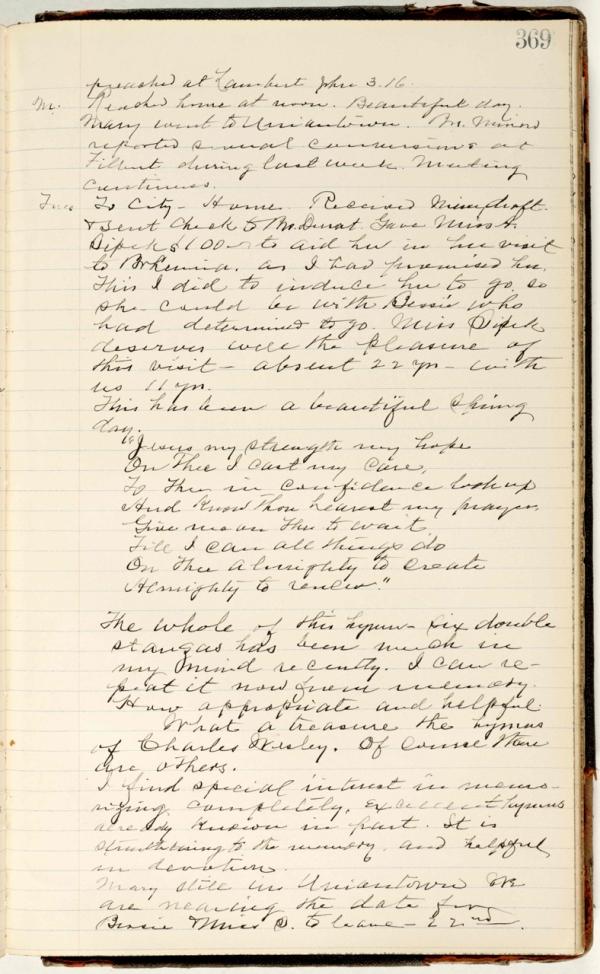 369
preached at Lambert John 3.16.
M. Reached home at noon. Beautiful day.
Mary went to Uniontown. Mr. Minard
reported several conversions at
Filbert during last week. Meeting
continues.
Tues To City - Home. Received
& sent check to Mr. Gave Miss
Dipek $100 to aid her in her visit
to Bohemia, as I had promised her.
This I did to induce her to go so
she could be with Bessie who
had determined to go. Miss Dipek
deserves well the pleasure of
this visit - absent 22 yr - with
us 11 yr.
This has been a beautiful Spring
day.
"Jesus my strength my hope
On Thee I cast my care,
To Thee in confidence look up
And know Thou hearest my prayer.
Give me on Thee to wait
Till I can all things do
On Thee Almighty to create
Almighty to renew."
The whole of this hymn - six double
stanzas has been much in
my mind recently. I can re-
peat it now from memory.
How appropriate and helpful.
What a treasure the hymns
of Charles Wesley. Of course there
are others.
I find special interest in memo-
rizing completely, excellent hymns
already known in part. It is
strengthening to the memory, and helpful
in devotion.
Mary still in Uniontown We
are nearing the date for
Bessie & Miss D. to leave - 22nd.